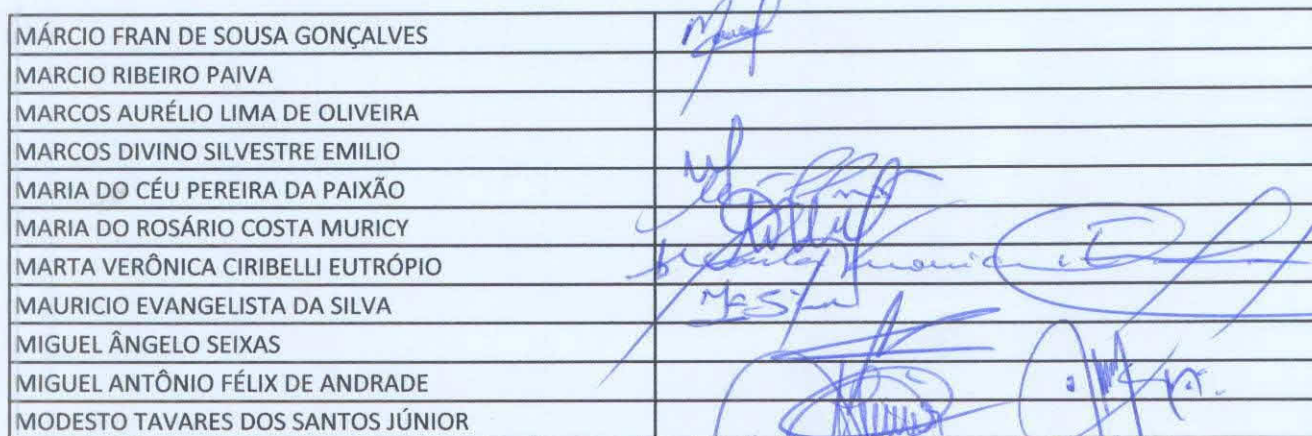 MÁRCIO FRAN DE SOUSA GONÇALVES
MARCIO RIBEIRO PAIVA
MARCOS AURÉLIO LIMA DE OLIVEIRA
MARCOS DIVINO SILVESTRE EMILIO
MARIA DO CÉU PEREIRA DA PAIXÃO
MARIA DO ROSÁRIO COSTA MURICY
MARTA VERÔNICA CIRIBELLI EUTRÓPIO
MAURICIO EVANGELISTA DA SILVA
MIGUEL ÂNGELO SEIXAS
MIGUEL ANTÔNIO FÉLIX DE ANDRADE
MODESTO TAVARES DOS SANTOS JÚNIOR